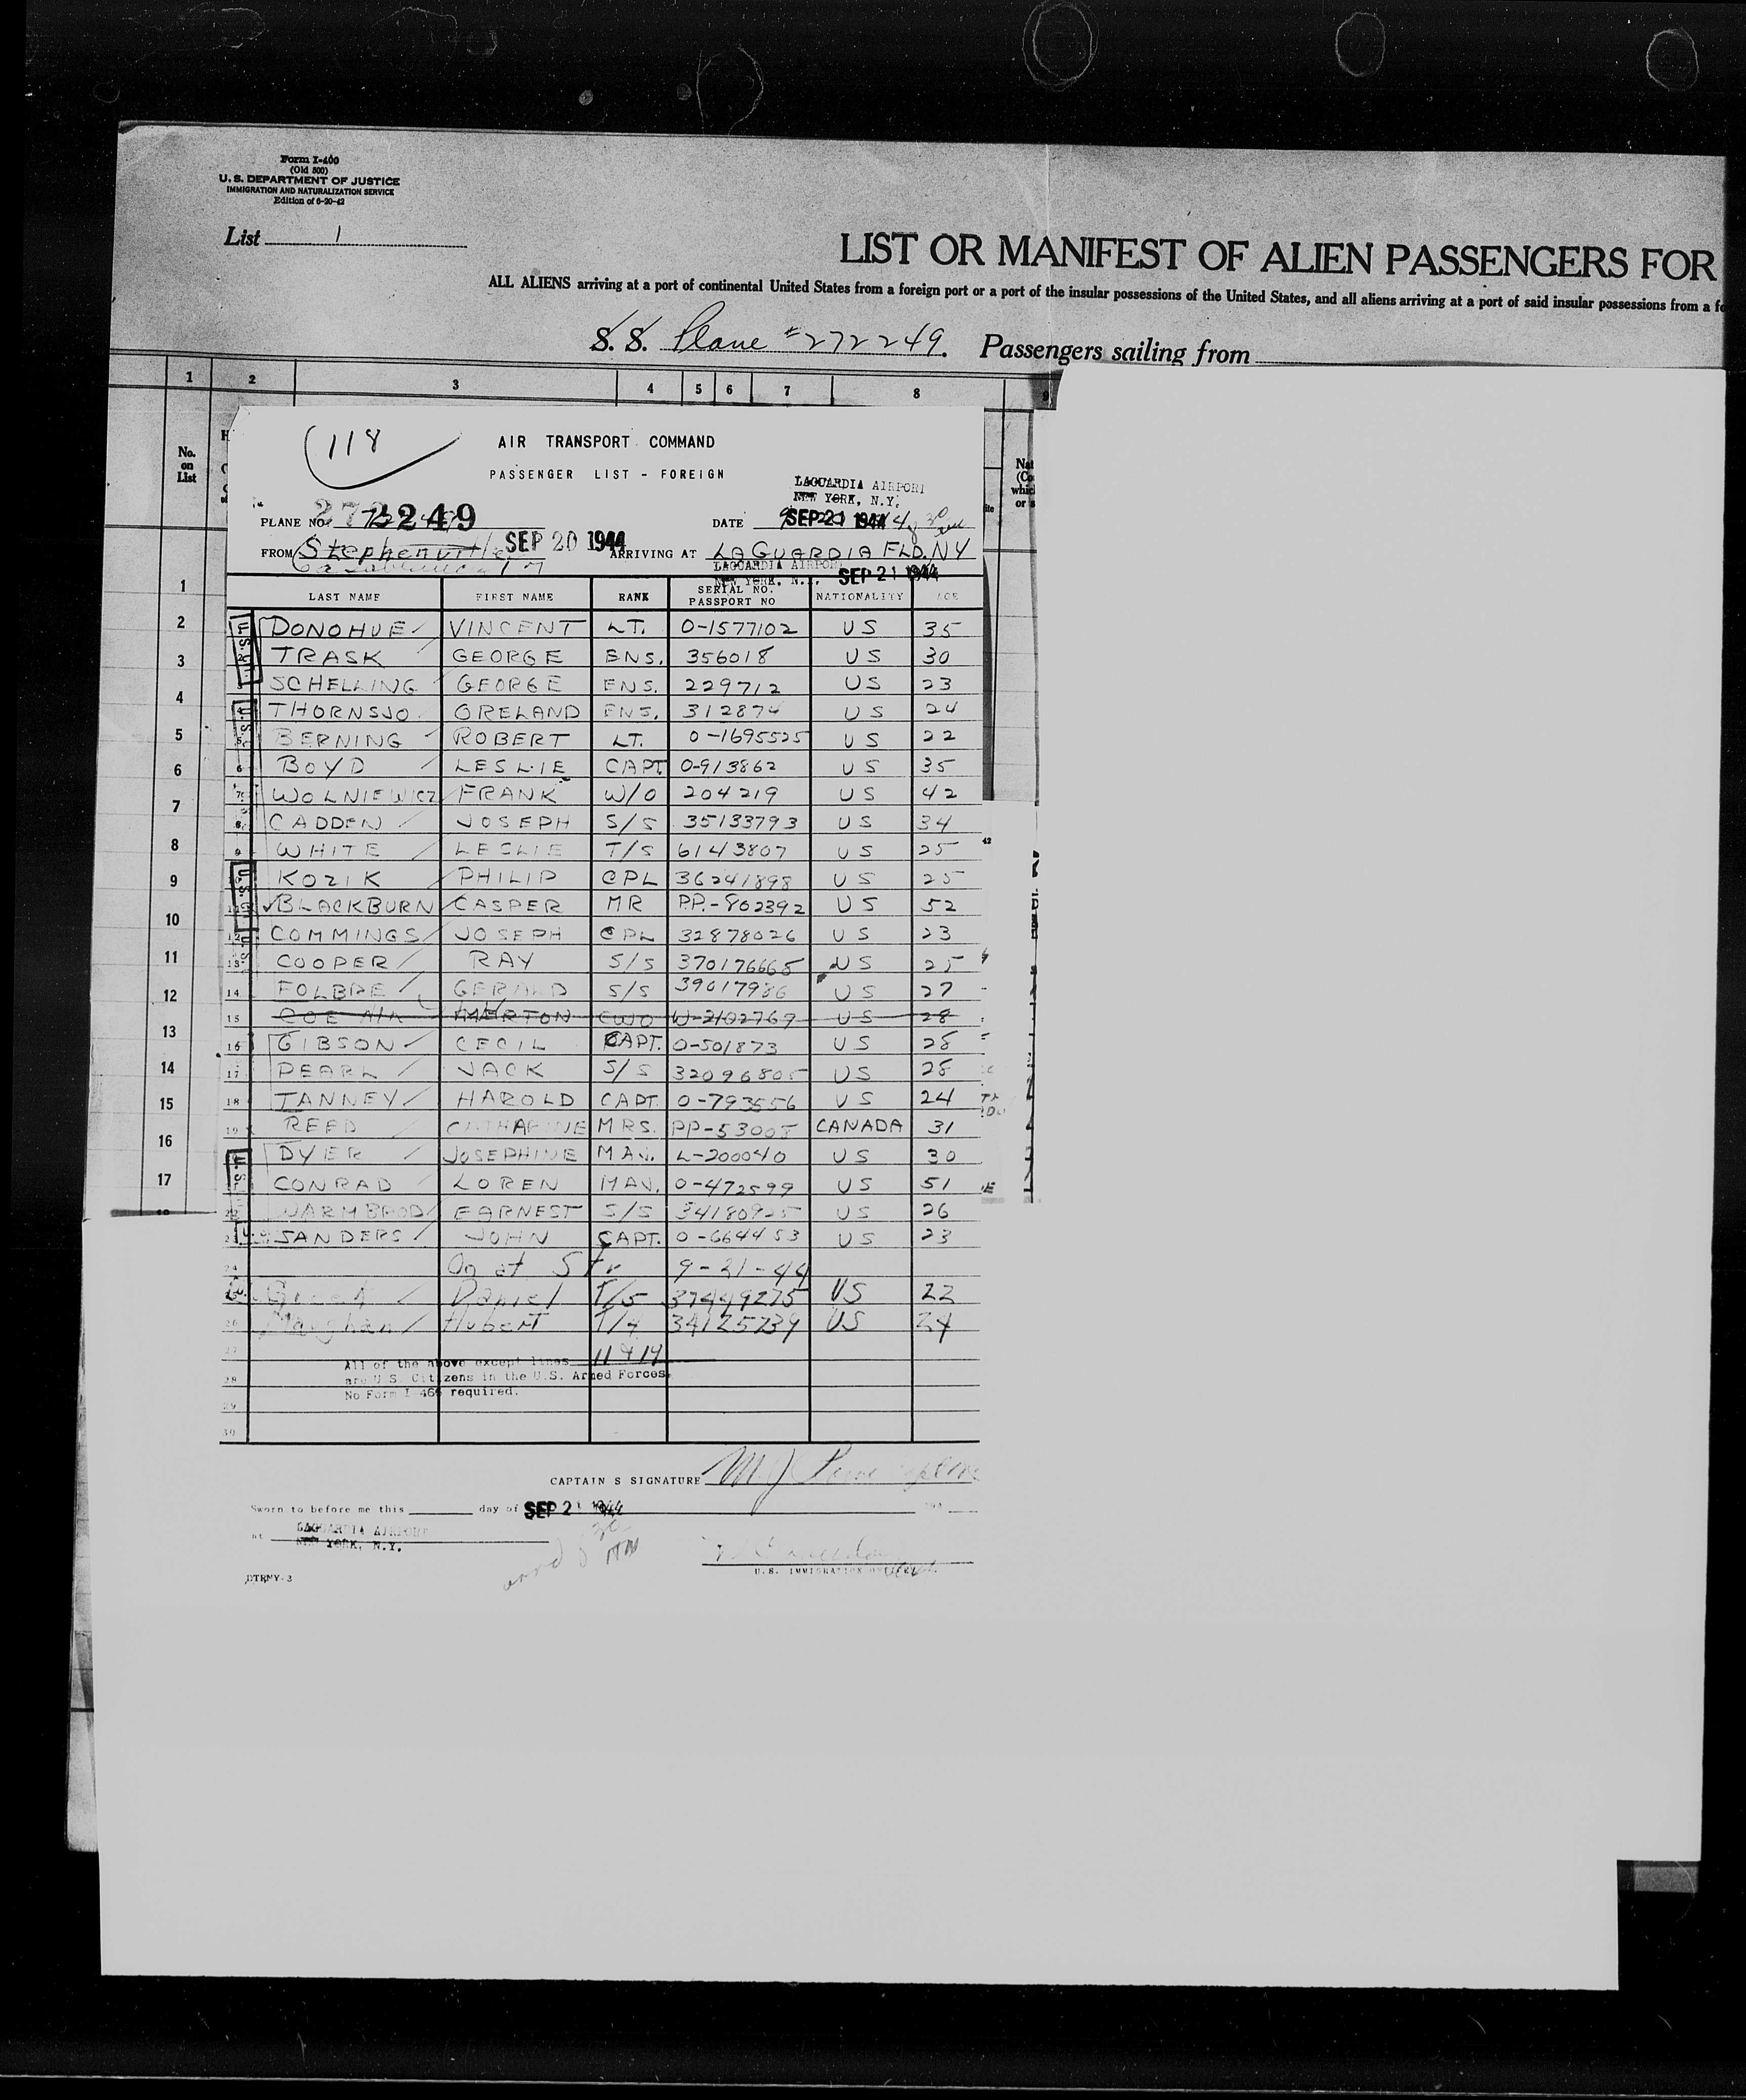 Form I-400
(Old 500)
U. S. DEPARTMENT OF JUSTICE
IMMIGRATION AND NATURALIZATION SERVICE
Edition of 6-20-42
List 1
LIST OR MANIFEST OF ALIEN PASSENGERS FOR
ALL ALIENS arriving at a port of continental United States from a foreign port or a port of the insular possessions of the United States, and all aliens arriving at a port of said insular possessions from a fo
S. S. Plane #272249. Passengers sailing from
1 2 3 4 5 6 7 8 9
No. on List
118
AIR TRANSPORT COMMAND
PASSENGER LIST - FOREIGN
LAGUARDIA AIRPORT
NEW YORK, N.Y.
PLANE NO. 272249 DATE SEP 21 1944
FROM Stephenville SEP 20 1944 ARRIVING AT LA GUARDIA FLD. NY
Casablanca
LAGUARDIA AIRPORT
NEW YORK, N.Y. SEP 21 1944
LAST NAME FIRST NAME RANK SERIAL NO. PASSPORT NO NATIONALITY AGE
DONOHUE VINCENT LT. 0-1577102 US 35
TRASK GEORGE ENS. 356018 US 30
SCHELLING GEORGE ENS. 229712 US 23
THORNSJO ORELAND ENS. 312874 US 24
5 BERNING ROBERT LT. 0-1695525 US 22
6 BOYD LESLIE CAPT 0-913862 US 35
7 WOLNIEWICZ FRANK W/O 204219 US 42
8 CADDEN JOSEPH S/S 35133793 US 34
9 WHITE LESLIE T/S 6143807 US 25
KOZIK PHILIP CPL 36241898 US 25
11 BLACKBURN CASPER MR PP.-802392 US 52
12 COMMINGS JOSEPH CPL 32878026 US 23
13 COOPER RAY S/S 370176665 US 25
14 FOLBRE GERALD S/S 39017986 US 27
15 COE MARTON CWO W-2102769 US 28
16 GIBSON CECIL CAPT. 0-501873 US 28
17 PEARL JACK S/S 32096805 US 28
18 TANNEY HAROLD CAPT 0-793556 US 24
19 REED CATHARINE MRS. PP-53005 CANADA 31
DYER JOSEPHINE MAJ. L-200040 US 30
CONRAD LOREN MAJ. 0-472599 US 51
22 WARMBROD EARNEST S/S 34180925 US 26
23 SANDERS JOHN CAPT. 0-664453 US 23
24 On at Str 9-21-44
Daniel T/5 37449275 US 22
26 Maughan Hubert T/4 34125739 US 24
27
All of the above except lines 11 & 19
28 are U.S. Citizens in the U.S. Armed Forces.
No Form I-466 required.
29
30
1
2
3
4
5
6
7
8
9
10
11
12
13
14
15
16
17
CAPTAIN S SIGNATURE
Sworn to before me this day of SEP 21 1944
at LAGUARDIA AIRPORT
NEW YORK, N.Y.
U.S. IMMIGRATION OFFICER
DTRNY-3